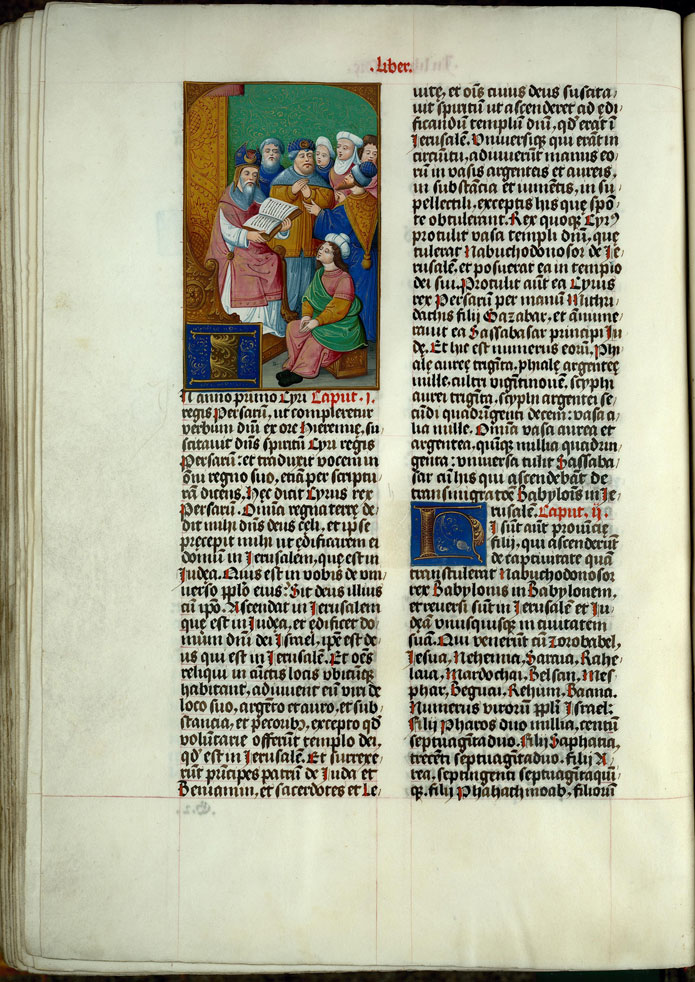 .Liber.
IN anno primo Cyri Caput. I.
regis Persarū, ut compleretur
verbum dn̄i ex ore Hieremię, su
scitavit dn̄s spiritū Cyri regis
Persarū: et traduxit vocem in
om̄i regno suo, etiā per scriptu
rā dicens, Hęc dicit Cyrus rex
Persarū. Om̄ia regna terrę de
dit mihi dn̄s deus cęli, et ip̄se
pręcepit mihi ut ędificarem ei
domū in Jerusalem, quę est in
Judęa. Quis est in vobis de uni
verso pp̄lo eius: Sit deus illius
cū ip̄o. Ascendat in Jerusalem
quę est in Judęa, et ędificet do
mum dn̄i dei Israel, ip̄e est de
us qui est in Jerusalē. Et oēs
reliqui in cūctis locis ubicūq̄
habitant, adiuvent eū viri de
loco suo, argēto et auro, et sub
stantia, et pecorib⁹, excepto qd̄
volūtarie offerūt templo dei,
qd̄ est in Jerusalē. Et surrexe
rūt prīcipes patrū de Juda et
Beniamin, et sacerdotes et Le
vitę, et oīs cuius deus suscita
vit spiritū ut ascenderet ad ędi
ficandū templū dn̄i, qd̄ erat ī
Jerusalē. Universiq̄ qui erāt in
circūitu, adiuverūt manus eo
rū in vasis argenteis et aureis,
in substātia et iumētis, in su
pellectili, exceptis his quę spō
te obtulerant. Rex quoq̄ Cyr⁹
protulit vasa templi dn̄i, quę
tulerat Nabuchodonosor de Je
rusalē, et posuerat ea in templo
dei sui. Protulit aūt ea Cyrus
rex Persarū per manū Mithri
dathis filij Gazabar, et annume
ravit ea Sassabasar principi Ju
dę. Et hic est numerus eorū, Phi
alę aureę trigīta, phialę argenteę
mille, cultri vigītinovē, scyphi
aurei trigīta, scyphi argentei se
cūdi quadrīgenti decem: vasa a
lia mille. Om̄ia vasa aurea et
argentea, quīq̄ millia quadrin
genta: universa tulit Sassaba
sar cū his qui ascendebāt de
transmigratōe Babylōis in Je
rusalē. Caput. ij.
HI sūnt aūt provicię
filij, qui ascenderūnt
de captivitate quā
transtulerat Nabuchodonosor
rex Babylonis in Babylonem,
et reversi sūnt in Jerusalē et Ju
dęā unusquisque in civitatem
suā. Qui venerūt cū Zorobabel,
Jesua, Nehemia, Saraia, Rahe
laia, Mardochai, Belsan, Mes
phar, Beguai, Rehum, Baana.
Numerus virorum pp̄li Israel:
Filij Pharos duo millia, centū
septuagītaduo. Filij Saphatia,
trecēti septuagītaduo. filij A
rea, septingenti septuagītaquī
q̄. filij Phahath moab, filiorū